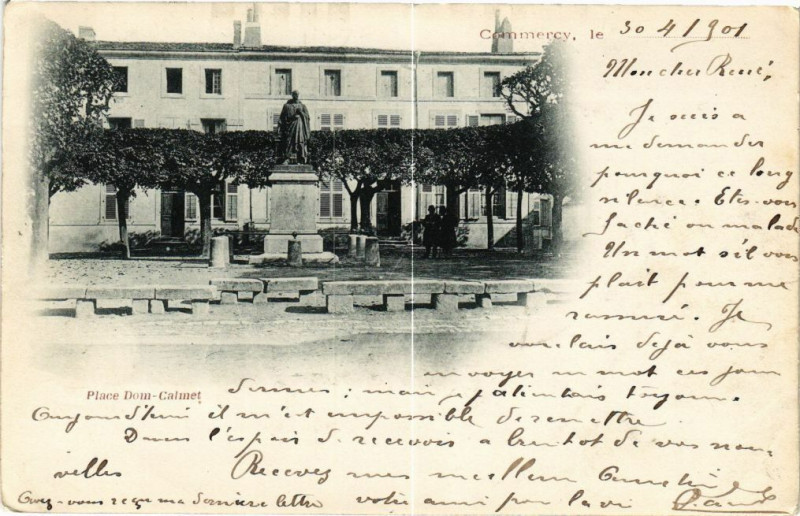 Commercy, le 30 4/901
Mon cher René,
Je suis a
me demander
pourquoi ce long
silence. Etes-vous
faché ou malade
Un mot s'il vous
plait pour me
rassurer. Je
voulais dejà vous
envoyer un mot ces jours
Place Dom-Calmet
derniers; mais je patientais toujours.
Aujourd'hui il m'est impossible de remettre.
Dans l'espoir de recevoir a bientot de vos nou-
velles Recevez mes meilleures
votre ami pour la vie
Avez-vous reçu ma dernière lettre